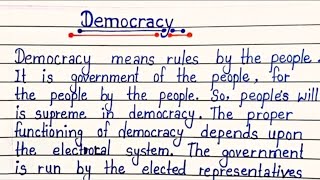 Democracy
Democracy means rules by the people.
It is government of the people, for
the people by the people. So, people's will
is supreme in democracy. The proper
functioning of democracy depends upon
the electrotal system. The government
is run by the elected representatives